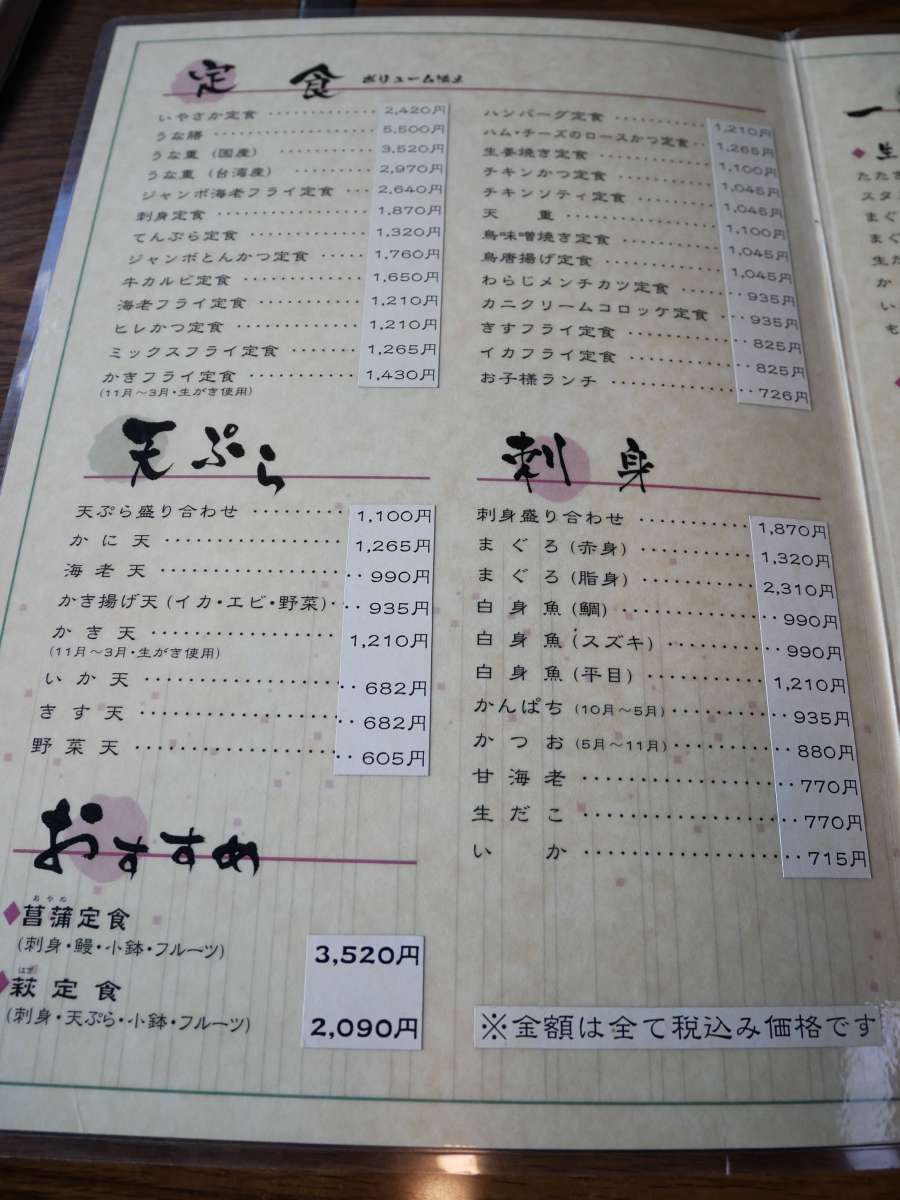 定食 ボリューム満点
いやさか定食 ………… 2,420円
うな膳 ………… 5,500円
うな重 (国産) ………… 3,520円
うな重 (台湾産) ………… 2,970円
ジャンボ海老フライ定食 … 2,640円
刺身定食 ………… 1,870円
てんぷら定食 ………… 1,320円
ジャンボとんかつ定食 …… 1,760円
牛カルビ定食 ………… 1,650円
海老フライ定食 ………… 1,210円
ヒレかつ定食 ………… 1,210円
ミックスフライ定食 ……… 1,265円
かきフライ定食 ………… 1,430円
(11月〜3月・生がき使用)
ハンバーグ定食 ………… 1,210円
ハム・チーズのロースかつ定食 … 1,265円
生姜焼き定食 ………… 1,100円
チキンかつ定食 ………… 1,045円
チキンソティ定食 ………… 1,045円
天重 ………… 1,100円
鳥味噌焼き定食 ………… 1,045円
鳥唐揚げ定食 ………… 1,045円
わらじメンチカツ定食 …… 935円
カニクリームコロッケ定食 … 935円
きすフライ定食 ………… 825円
イカフライ定食 ………… 825円
お子様ランチ ………… 726円
天ぷら
天ぷら盛り合わせ ………… 1,100円
かに天 ………… 1,265円
海老天 ………… 990円
かき揚げ天(イカ・エビ・野菜)… 935円
かき天 ………… 1,210円
(11月〜3月・生がき使用)
いか天 ………… 682円
きす天 ………… 682円
野菜天 ………… 605円
刺身
刺身盛り合わせ ………… 1,870円
まぐろ(赤身) ………… 1,320円
まぐろ(脂身) ………… 2,310円
白身魚(鯛) ………… 990円
白身魚(スズキ) ………… 990円
白身魚(平目) ………… 1,210円
かんぱち (10月〜5月) ……… 935円
かつお (5月〜11月) ……… 880円
甘海老 ………… 770円
生だこ ………… 770円
いか ………… 715円
おすすめ
あやめ
◆菖蒲定食
(刺身・鰻・小鉢・フルーツ) 3,520円
はぎ
◆萩定食
(刺身・天ぷら・小鉢・フルーツ) 2,090円
※金額は全て税込み価格です
一
◆生
たたき
スタ
まぐ
まぐ
生た
か
い
も